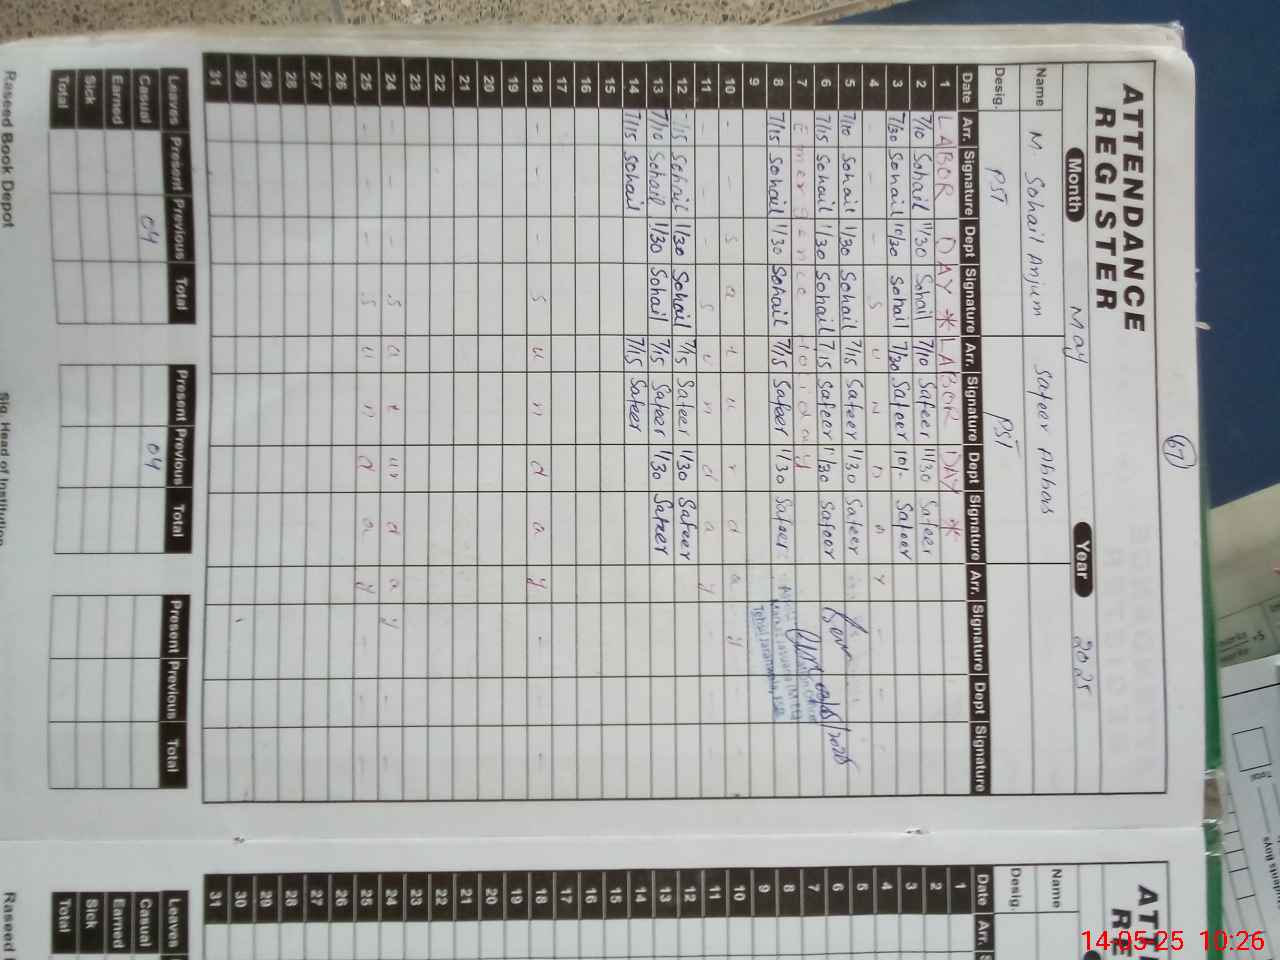 67
ATTENDANCE REGISTER
Month May Year 2025
Name M. Sohail Anjum Safeer Abbas
Desig. PST PST
Date Arr. Signature Dept Signature Arr. Signature Dept Signature Arr. Signature Dept Signature
1 LABOR DAY * LABOR DAY *
2 7/10 Sohail 11/30 Sohail 7/10 Safeer 11/30 Safeer
3 7/30 Sohail 10/30 Sohail 7/30 Safeer 10/- Safeer
4 - - S u n d a y - -
5 7/10 Sohail 1/30 Sohail 7/15 Safeer 1/30 Safeer
6 7/15 Sohail 1/30 Sohail 7/15 Safeer 1/30 Safeer
7 Emergence Holiday
8 7/15 Sohail 1/30 Sohail 7/15 Safeer 1/30 Safeer
9
10 - - S a t u r d a y - -
11 - - - S u n d a y - - -
12 7/15 Sohail 1/30 Sohail 7/15 Safeer 1/30 Safeer
13 7/10 Sohail 1/30 Sohail 7/15 Safeer 1/30 Safeer
14 7/15 Sohail 7/15 Safeer
15
16
17
18 - - - S u n d a y - - -
19
20
21
22
23
24 - - - S a t u r d a y - -
25 - - - S u n d a y - - -
26
27
28
29
30
31
Leaves Present Previous Total Present Previous Total Present Previous Total
Casual 04 04
Earned
Sick
Total
Raseed Book Depot Sig. Head of Institution
Tehsil Jaranwala, FSD
Name
Desig.
Date Arr.
1
2
3
4
5
6
7
8
9
10
11
12
13
14
15
16
17
18
19
20
21
22
23
24
25
26
27
28
29
30
31
Leaves
Casual
Earned
Sick
Total
Raseed
14-05-25 10:26